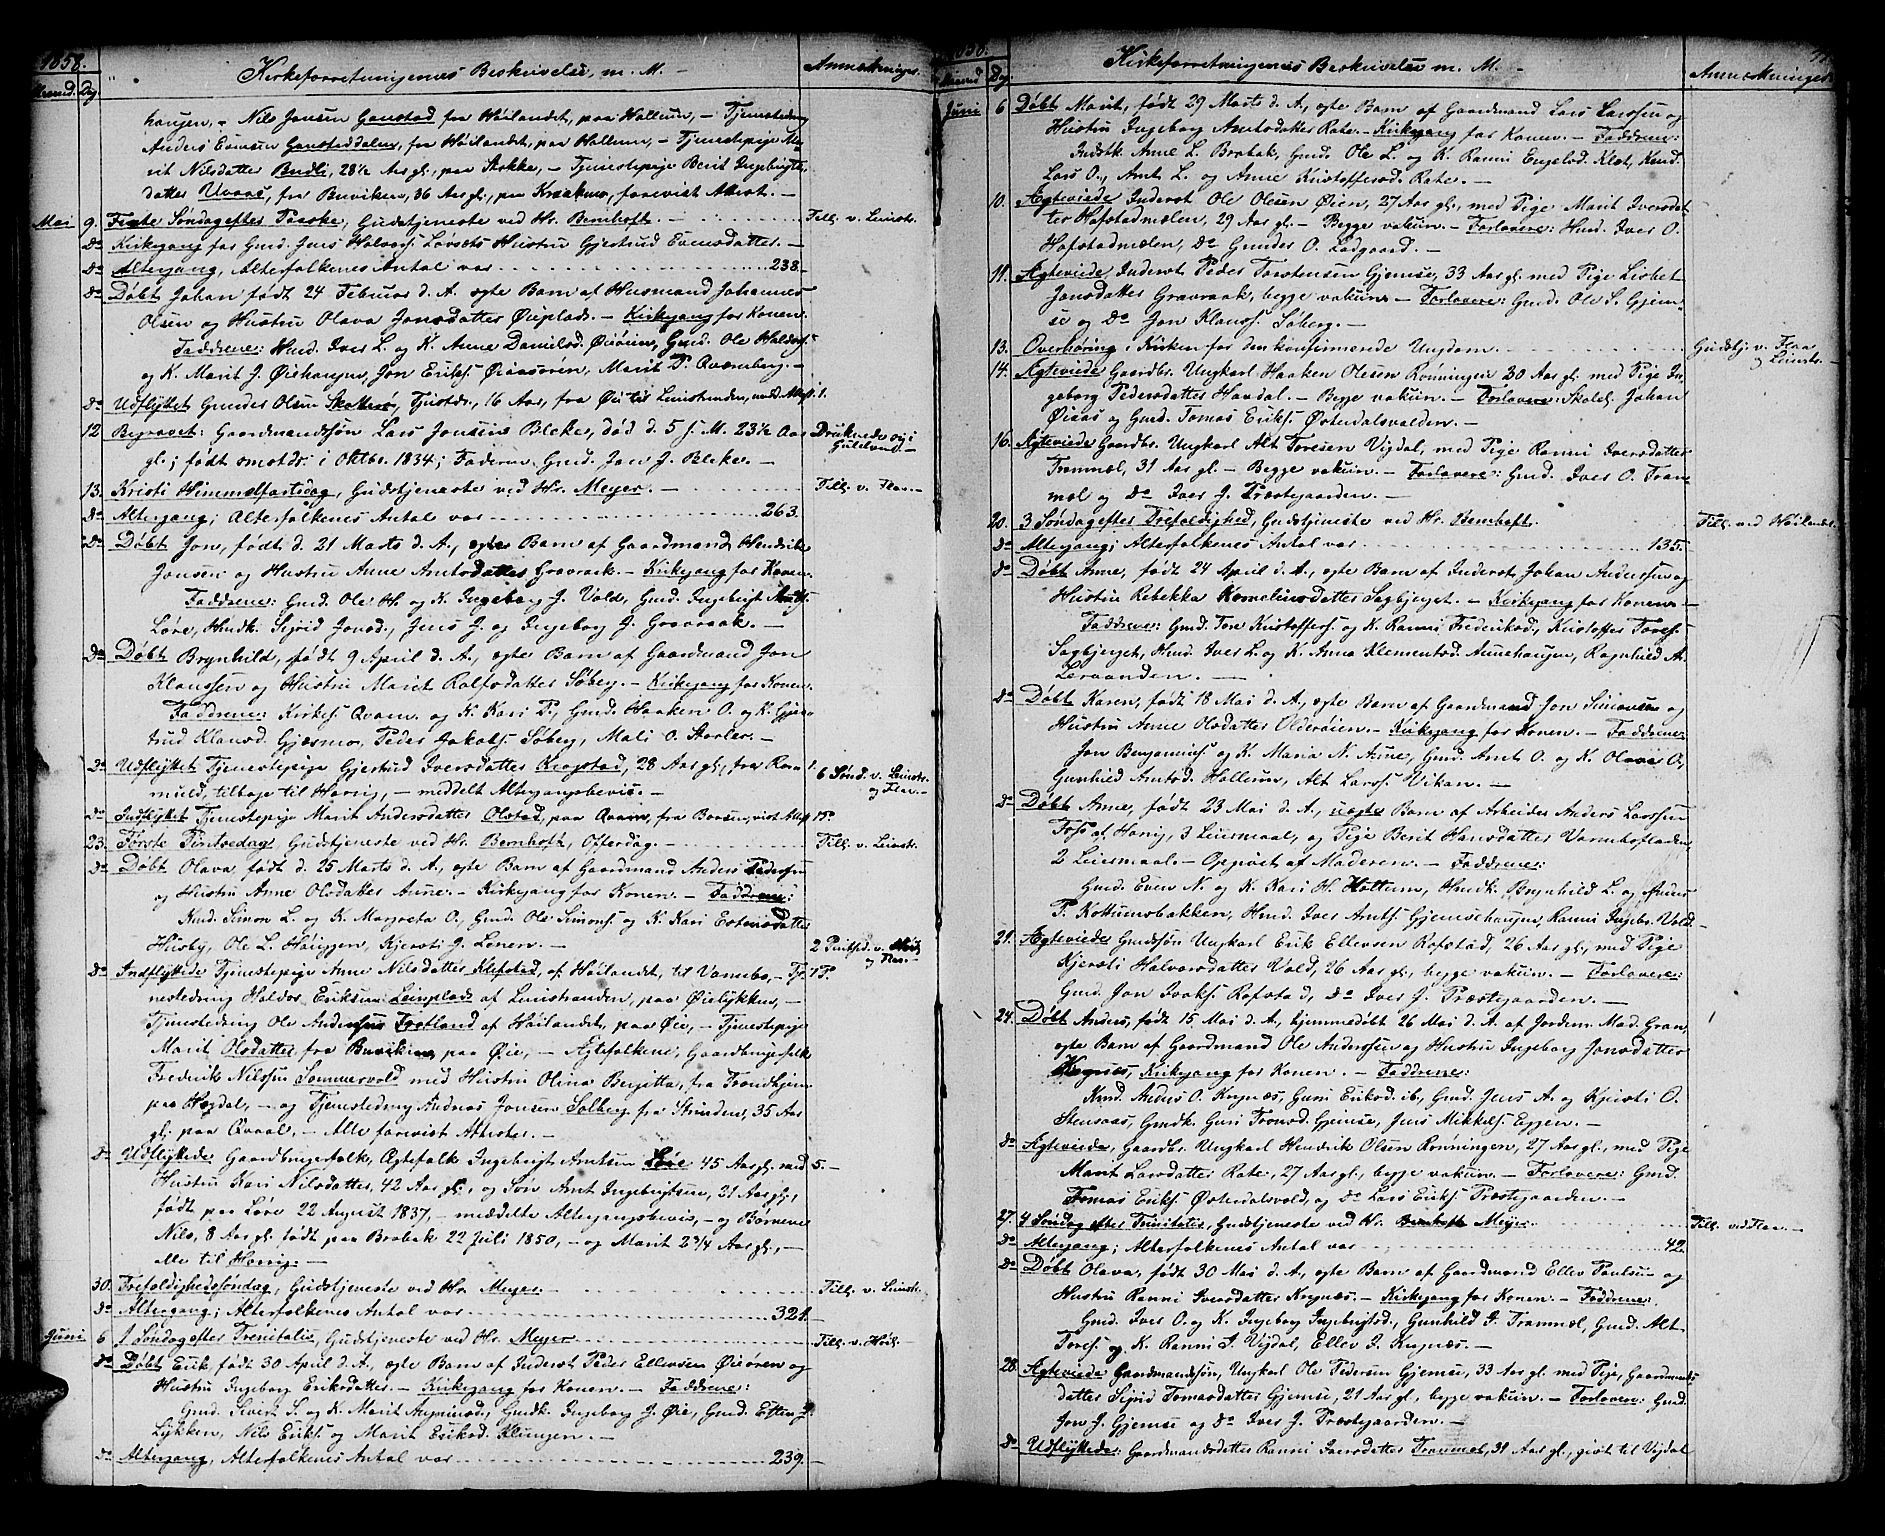 1858.
Kirkeforretningernes Beskrivelse, m. M. -
Anmærkninger.
Maaned. Dag.
haugen, - Nils Jonsen Gaustad fra Høilandet, paa Hollum, - Tjenestedreng
Anders Evensen Gaustaddalen, fra Høilandet, paa Hollum, - Tjenestepige Ma-
rit Nilsdatter Budli, 28½ Aar gl., paa Stokke, - Tjenestepige Berit Ingebrigts-
datter Uvaas, fra Buviken, 36 Aar gl., paa Kraakum, forevist Attest. -
Mai 9. Femte Søndag efter Paaske, Gudstjeneste ved Hr. Bernhoft. - Till. v. Leinstr.
do Kirkegang for Gmd. Jens Halvors. Lørsets Hustru Gjertrud Evensdatter. -
do Altergang, Alterfolkenes Antal var 238.
do Døbt Johan født 24 Februar d. A. ægte Barn af Husmand Johannes
Olsen og Hustru Olava Jonsdatter Øieplads. - Kirkegang for Konen.
Faddrene: Hmd. Iver L. og K. Anne Danielsd. Øiøren, Gmd. Ole Haldors.
og K. Marit J. Øiehaugen, Jon Eriks. Øiaasøren, Marit P. Qvernberg. -
do Udflyttet Gunder Olsen Skotterø, Tjustdr., 16 Aar, fra Øie til Leinstranden, med Attest. 1.
12. Begravet: Gaardmandssøn Lars Jonsen Bleke, død d. 5 f. M. 23½ Aar
gl.; født omtdr. i Oktbr. 1834; Faderen Gmd. Jon J. Bleke. -
Druknede sig i
Guldelven. -
13. Kristi Himmelfartsdag, Gudstjeneste ved Hr. Meyer. - Till. v. Flaa. -
do Altergang; Alterfolkenes Antal var 263.
do Døbt Jon, født d. 21 Marts d. A., ægte Barn af Gaardmand Hendrik
Jonsen og Hustru Anne Arntsdatter Gravraak. - Kirkegang for Konen.
Faddrene: Gmd. Ole H. og K. Ingeborg J. Vold, Gmd. Ingebrigt Arnts.
Løre, Hmdk. Sigrid Jonsd., Jens J. og Ingeborg J. Gravraak. -
do Døbt Brynhild, født 9 April d. A., ægte Barn af Gaardmand Jon
Klaussen og Hustru Marit Rolfsdatter Søberg. - Kirkegang for Konen.
Faddrene: Kirkes. Qvam. og K. Kari P., Gmd. Haaken O. og K. Gjer-
trud Klausd. Gjæsmo, Peder Jakobs. Søberg, Mali O. Storler. -
do Udflyttet Tjenestepige Gjertrud Iversdatter Krogstad, 28 Aar gl., fra Rom- 1.
muld, tilbage til Horrig, - meddelt Altergangsbevis. -
6 Sønd. v. Leinstr.
og Flaa. -
do Indflyttet Tjenestepige Marit Andersdatter Olstad, paa Qvam, fra Børsen, vist Attest. 1 P.
23. Første Pintsedag, Gudstjeneste ved Hr. Bernhoft, Offerdag. - Till. v. Leinstr.
do Døbt Olava, født d. 25 Marts d. A., ægte Barn af Gaardmand Anders Pedersen
og Hustru Anne Olsdatter Aune. - Kirkegang for Konen. - Faddrene:
Gmd. Simon L. og K. Margreta O., Gmd. Ole Simons. og K. Kari Estensdatter
Husby, Ole L. Høiggen, Kjersti J. Lenen. -
2 Pintsed. v. Høil.
og Flaa. -
do Indflyttede Tjenestepige Anne Nilsdatter Klefstad, af Høilandet, til Varmbo, - Tj- 7 P.
nestedreng Haldor Eriksen Leinplads af Leinstranden, paa Øielykken, -
Tjenestedreng Ole Andersen Fretland af Høilandet, paa Øie, - Tjenestepige
Marit Olsdatter fra Buviken, paa Øie, - Ægtefolkene, Gaardbrugerfolk
Fredrik Nilssen Sommervold med Hustru Olina Bergitta, fra Trondhjem
paa Hogdal, - og Tjenestedreng Andreas Jonsen Solberg fra Strinden, 35 Aar
gl. paa Qvaal, - Alle forevist Attester. -
do Udflyttede Gaardbrugerfolk, Ægtefolk Ingebrigt Arntsen Løre 45 Aar gl. med 5. -
Hustru Kari Nilsdatter, 42 Aar gl., og Søn Arnt Ingebrigtsen, 21 Aar gl.,
født paa Løre 22 August 1837, - meddelte Altergangsbevis, - og Børnene
Nils, 8 Aar gl. født paa Brobak 22 Juli 1850, - og Marit 2¾ Aar gl., -
alle til Horrig. -
30. Trefoldighedssøndag, Gudstjeneste ved Hr. Meyer. - Till. v. Leinstr.
do Altergang; Alterfolkenes Antal var 321.
Juni 6 1 Søndag efter Treenitatis, Gudstjeneste ved Hr. Meyer Till. v. Høil.
do Døbt Erik født 30 April d. A., ægte Barn af Inderst Peder Ellevsen Øieøren og
Hustru Ingeborg Eriksdatter. - Kirkegang for Konen. - Faddrene:
Gmd. Sivert S. og K. Marit Asmunsd., Gmdk. Ingeborg J. Øie, Gmd. Esten J.
Lykken, Nils Eriks. og Marit Eriksd. Klungen. -
do Altergang, Alterfolkenes Antal var 239.
1858.
Kirkeforretningernes Beskrivelse m. M. -
Anmærkninger.
Maaned Dag.
Juni 6. Døbt Marit, født 29 Marts d. A., ægte Barn af Gaardmand Lars Larssen og
Hustru Ingeborg Arntsdatter Rate. - Kirkegang for Konen. - Faddrene:
Indstk. Anne L. Brobak, Gmd. Ole L. og K. Ranni Engelsd. Klæt, Gmd.
Lars O., Arnt L. og Anne Kristoffersd. Rate. -
10. Ægteviede Inderst Ole Olsen Øien, 27 Aar gl., med Pige Marit Iversdat-
ter Hofstadmælen, 29 Aar gl. - Begge vakcin. - Forlovere: Hmd. Iver O.
Hofstadmælen, do Gunder O. Ladgaard. -
11. Ægteviede Inderst Peder Torstensen Gjemse, 33 Aar gl. med Pige Lisbet
Jonsdatter Gravraak, begge vakcin. - Forlovere: Gmd. Ole S. Gjem-
se og do Jon Klauss. Søberg. -
13. Overhøring i Kirken for den konfirmerede Ungdom. Gudstj. v. Flaa
og Leinstr. -
14. Ægteviede Gaardbr. Ungkarl Haaken Olesen Rønningen 30 Aar gl. med Pige In-
geborg Pedersdatter Havdal. - Begge vakcin. - Forlovere: Skolel. Johan
Øiaas og Gmd. Tomas Eriks. Østerdalsvolden. -
16. Ægteviede Gaardbr. Ungkarl Alt Toresen Vigdal, med Pige Ranni Iversdatter
Trammæl, 31 Aar gl. - Begge vakcin. - Forlovere: Gmd. Iver O. Tram-
mæl og do Iver J. Præstegaarden. -
20. 3 Søndag efter Trefoldighed, Gudstjeneste ved Hr. Bernhoft. Till. ved Høilandet.
do Altergang; Alterfolkenes Antal var 135.
do Døbt Anne, født 24 April d. A., ægte Barn af Inderst Johan Anderssen og
Hustru Rebekka Korneliusdatter Sagbjerget. - Kirkegang for Konen. -
Faddrene: Gmd. Tore Kristoffers. og K. Ranni Frederiksd., Kristoffer Tores.
Sagbjerget, Hmd. Iver L. og K. Anna Klementsd. Aunehaugen, Ragnhild A.
Leraanden. -
do Døbt Karen, født 18 Mai d. A., ægte Barn af Gaardmand Jon Simonsen og
Hustru Anne Olsdatter Ulderøien. - Kirkegang for Konen. - Faddrene:
Jon Benjamins. og K. Maria N. Aune, Gmd. Arnt O. og K. Olava O.,
Gunhild Arntsd. Hollum, Alt Larss. Vikan. -
do Døbt Anne, født 23 Mai d. A., uægte Barn af Arbeider Anders Larssen
Foss af Horrig, 3 Leiermaal, og Pige Berit Hansdatter Varmbofladen,
2 Leiermaal. - Oppøst af Moderen. - Faddrene:
Gmd. Even N. og K. Kari H. Holtum, Hmdk. Brynhild L. og Anders
P. Kottumsbakken, Hmd. Iver Arnts. Gjemsehaugen, Ranni Ingebr. Vold. -
21. Ægteviede Gmdssøn Ungkarl Erik Ellevsen Rofstad, 26 Aar gl., med Pige
Kjersti Halvorsdatter Vold, 26 Aar gl., begge vakcin. - Forlovere:
Gmd. Jon Isaks. Rofstad, do Iver J. Præstegaarden. -
24. Døbt Anders, født 15 Mai d. A., hjemmedøbt 26 Mai d. A. af Jordem. Mad. Gran,
ægte Barn af Gaardmand Ole Anderssen og Hustru Ingeborg Jonsdatter
Kregnæs, Kirkegang for Konen. - Faddrene:
Gmd. Anders O. Kregnæs, Guri Eriksd. ib., Gmd. Jens A. og Kjersti O.
Stensaas, Gmdk. Guri Tronsd. Gjemse, Jens Mikkels. Eggen. -
do Ægteviede, Gaardbr. Ungkarl Hendrik Olsen Rønningen, 27 Aar gl., med Pige
Marit Larsdatter Rate, 27 Aar gl., begge vakcin. - Forlovere: Gmd.
Tomas Eriks. Østerdalsvold, og do Lars Eriks. Præstegaarden. -
27. 4 Søndag efter Trinitatis, Gudstjeneste ved Hr. Meyer. Till. ved Flaa. -
do Altergang; Alterfolkenes Antal var 42.
do Døbt Olava, født 30 Mai d. A., ægte Barn af Gaardmand Ellev Paulsen og
Hustru Ranni Iversdatter Kregnæs. - Kirkegang for Konen. - Faddrene:
Gmd. Iver O. og K. Ingeborg Ingebrigtsd., Gunhild I. Trammæl, Gmd. Alt
Tores. og K. Ranni I. Vigdal, Ellev I. Kregnæs. -
28. Ægteviede Gaardmandssøn, Ungkarl Ole Pedersen Gjemse, 33 Aar gl. med Pige, Gaardmands-
datter Sigrid Tomasdatter Gjemse, 21 Aar gl., begge vakcin. - Forlovere: Gmd.
Jon J. Gjemse og do Iver J. Præstegaarden. -
do Udflyttede: Gaardmandsdatter Ranni Iversdatter Trammæl, 31 Aar gl., givt til Vigdal